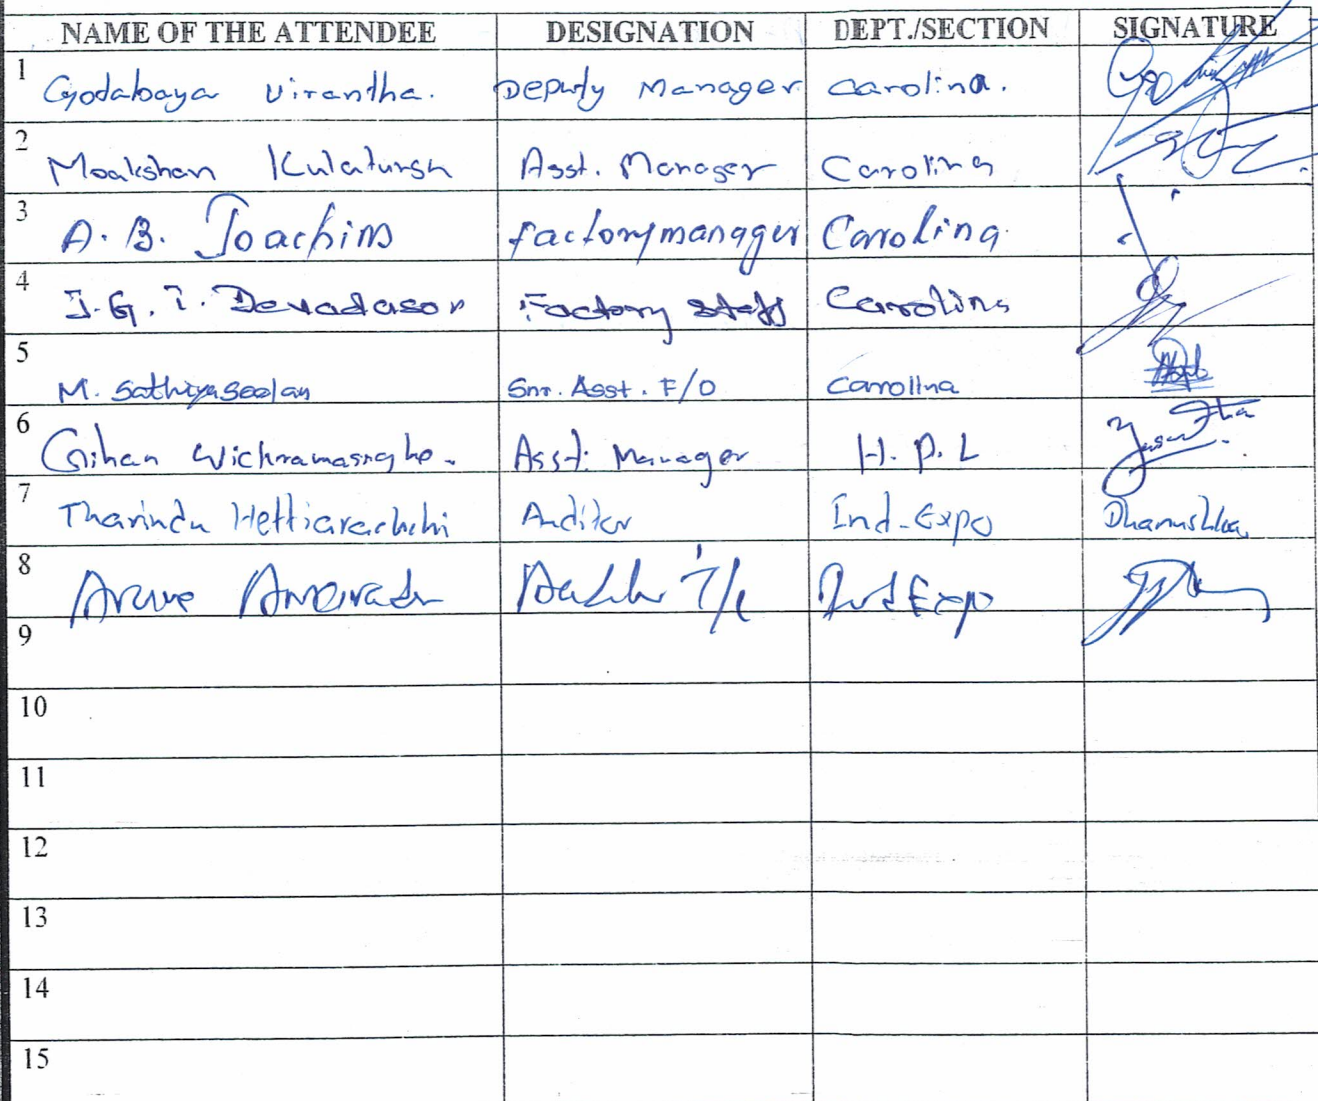 NAME OF THE ATTENDEE DESIGNATION DEPT./SECTION SIGNATURE
1 Godabaya Virantha. Deputy Manager Carolina.
2 Moakshan Asst. Manager Carolina
3 A. B. Joachim factorymanager Carolina.
4 J. G. I. Devadason Factory staff Carolina
5 M. Sathiyaseelan Snr. Asst. F/O Carolina
6 Gihan Wickramasinghe. Asst. Manager H. P. L
7 Tharindu Hettiarachchi Auditor Ind-Expo Dhanushka
8 Ind Expo
9
10
11
12
13
14
15